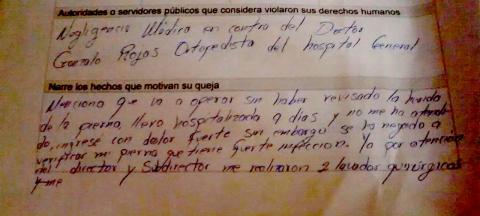 Autoridades o servidores públicos que considera violaron sus derechos humanos
Negligencia Médica en contra del Doctor
Gonzalo Rojas Ortopedista del hospital General
Narre los hechos que motivan su queja
Menciona que va a operar sin haber revisado la herida
de la pierna, llevo hospitalizada 9 dias y no me ha
do, ingrese con dolor fuerte sin embargo se ha negado a
verificar mi pierna que tiene fuerte infeccion. Ya por atencion
del director y Subdirector me realizaron 2 lavados quirurgicos
y me